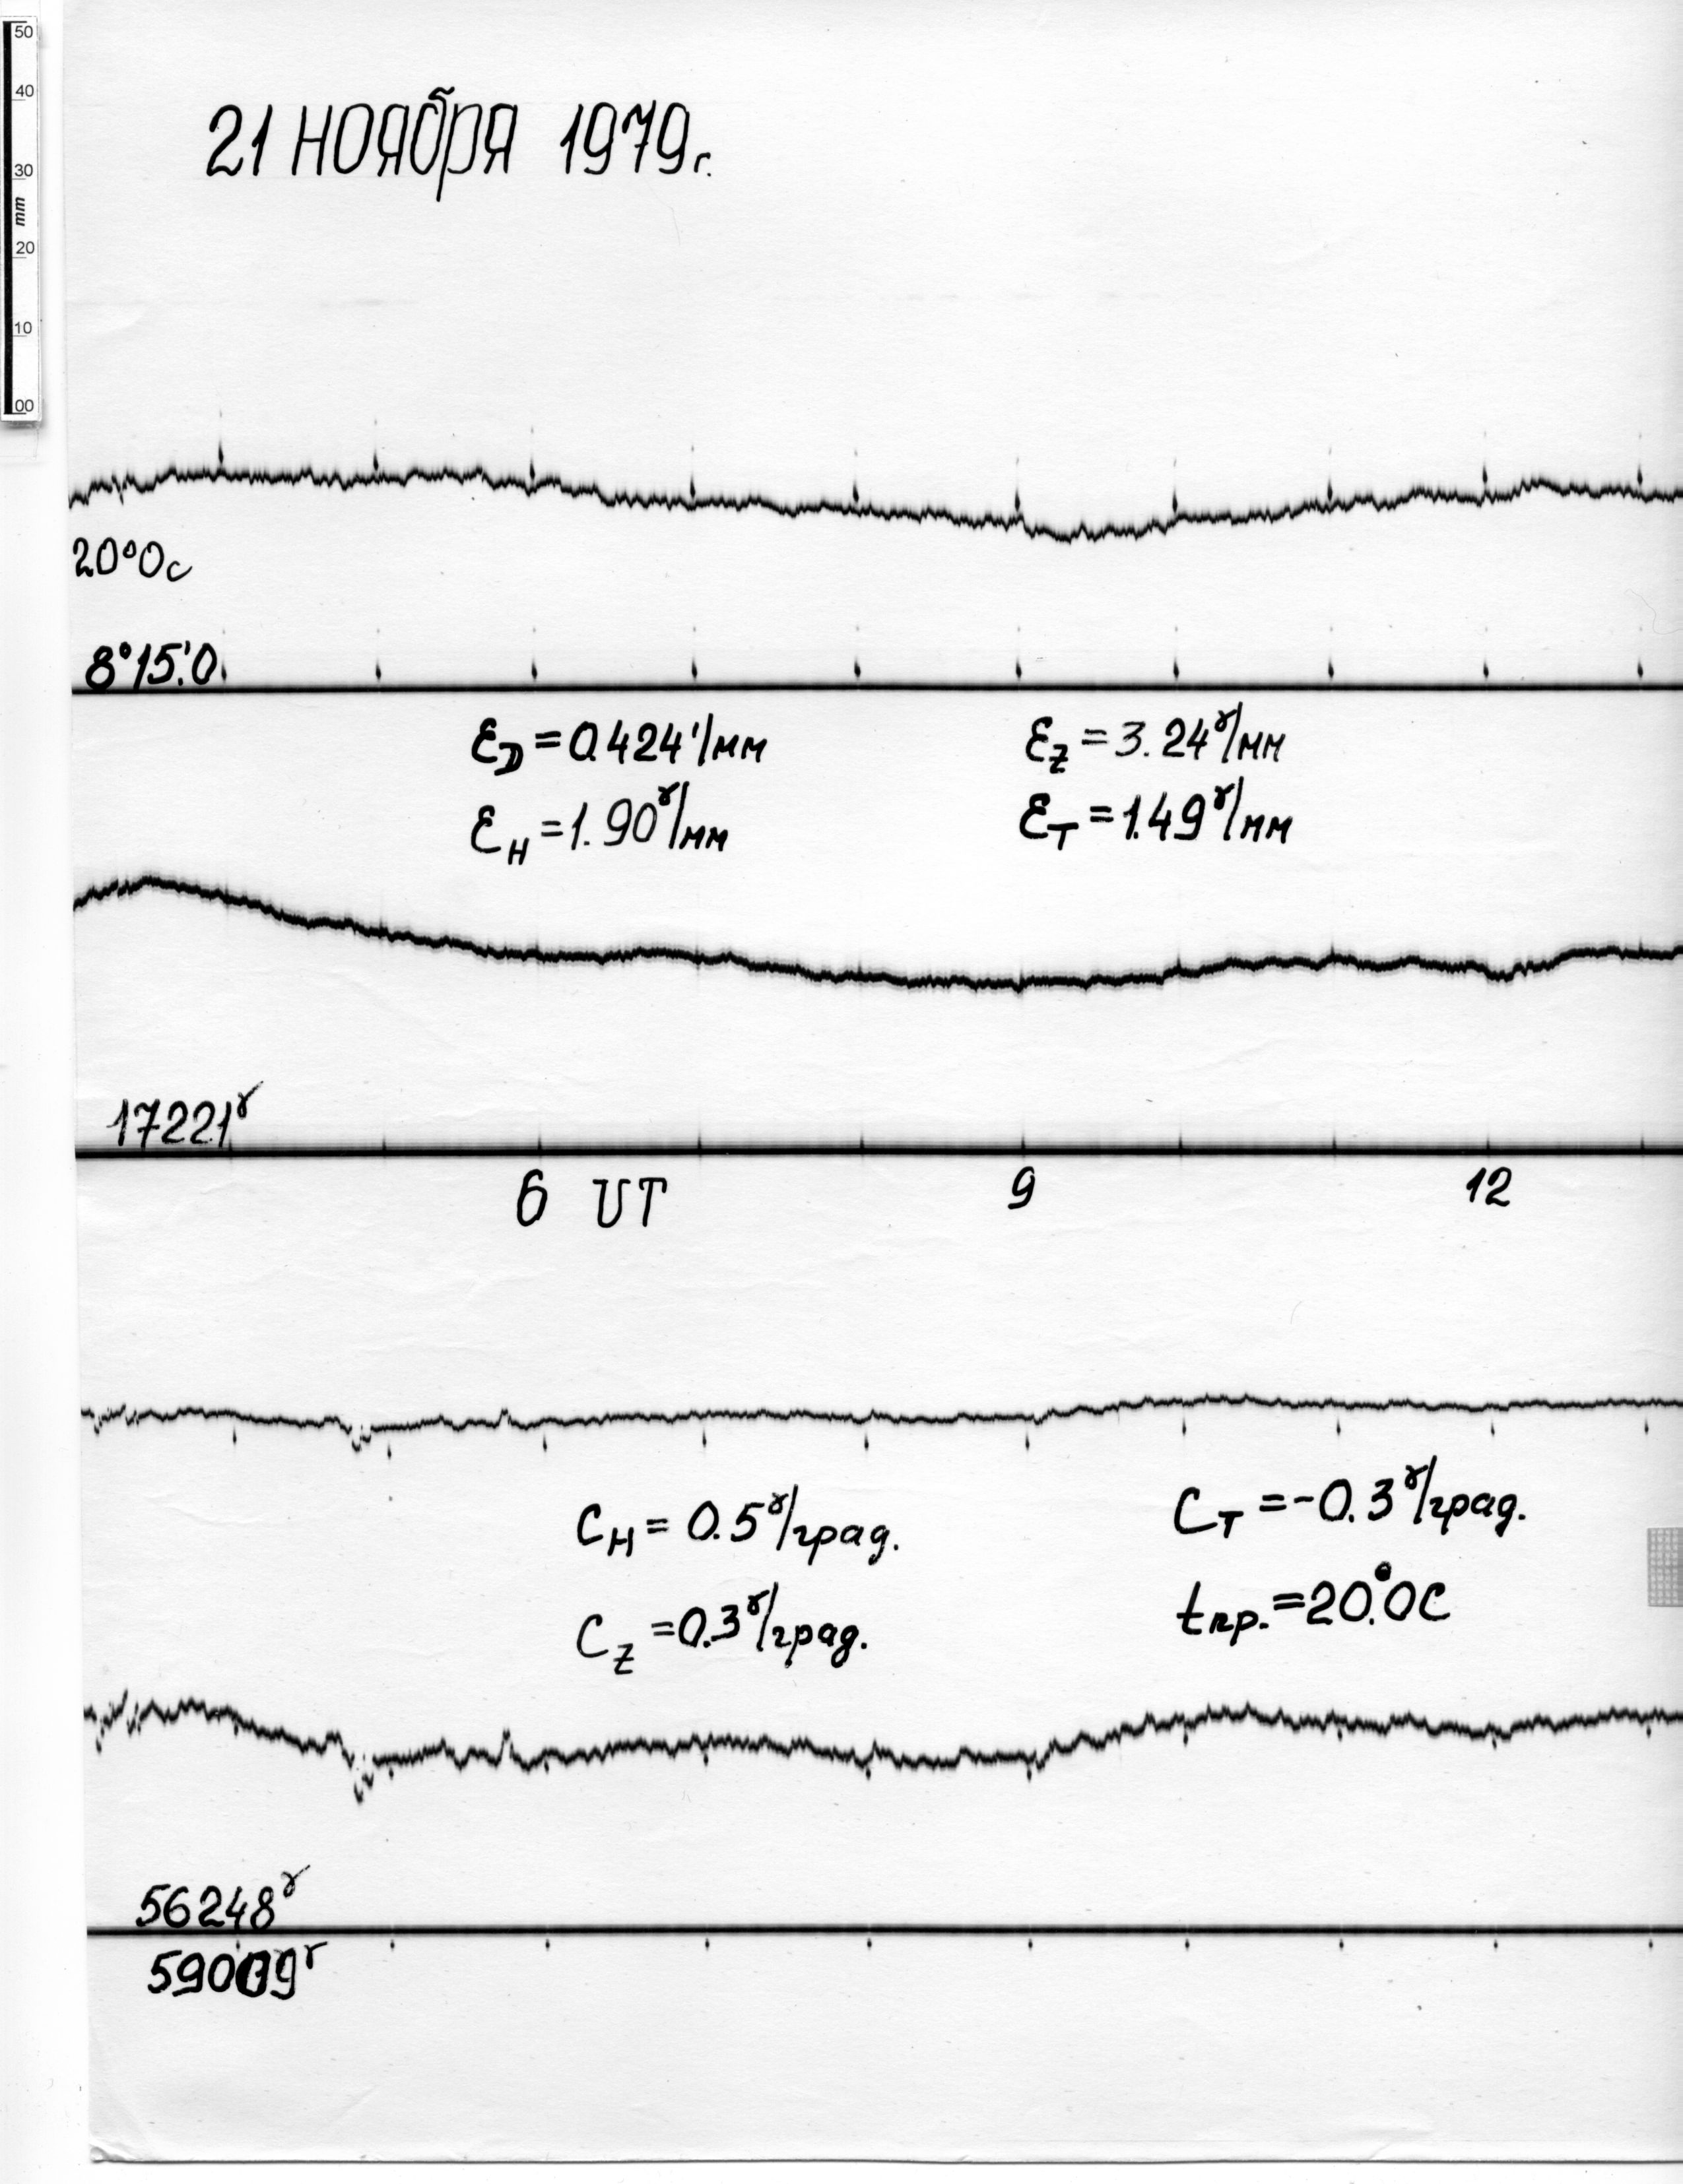 50
40
30
mm
20
10
00
21 НОЯБРЯ 1979г.
20°0с
8°15.'0
ε_D = 0.424'/мм
ε_Z = 3.24γ/мм
ε_H = 1.90γ/мм
ε_T = 1.49γ/мм
17221γ
6 UT 9 12
C_H = 0.5γ/град.
C_T = -0.3γ/град.
C_Z = 0.3γ/град.
tпр. = 20.°0С
56248γ